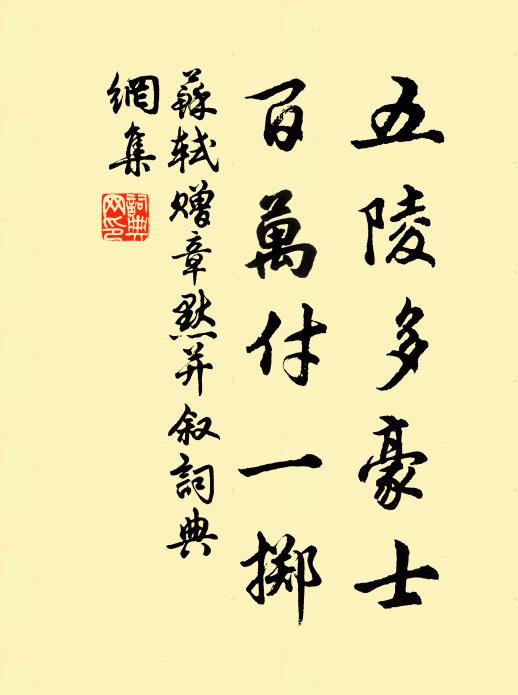 五陵多豪士
百萬付一擲
蘇軾贈章默并叙詞典
網集
詞典
网印